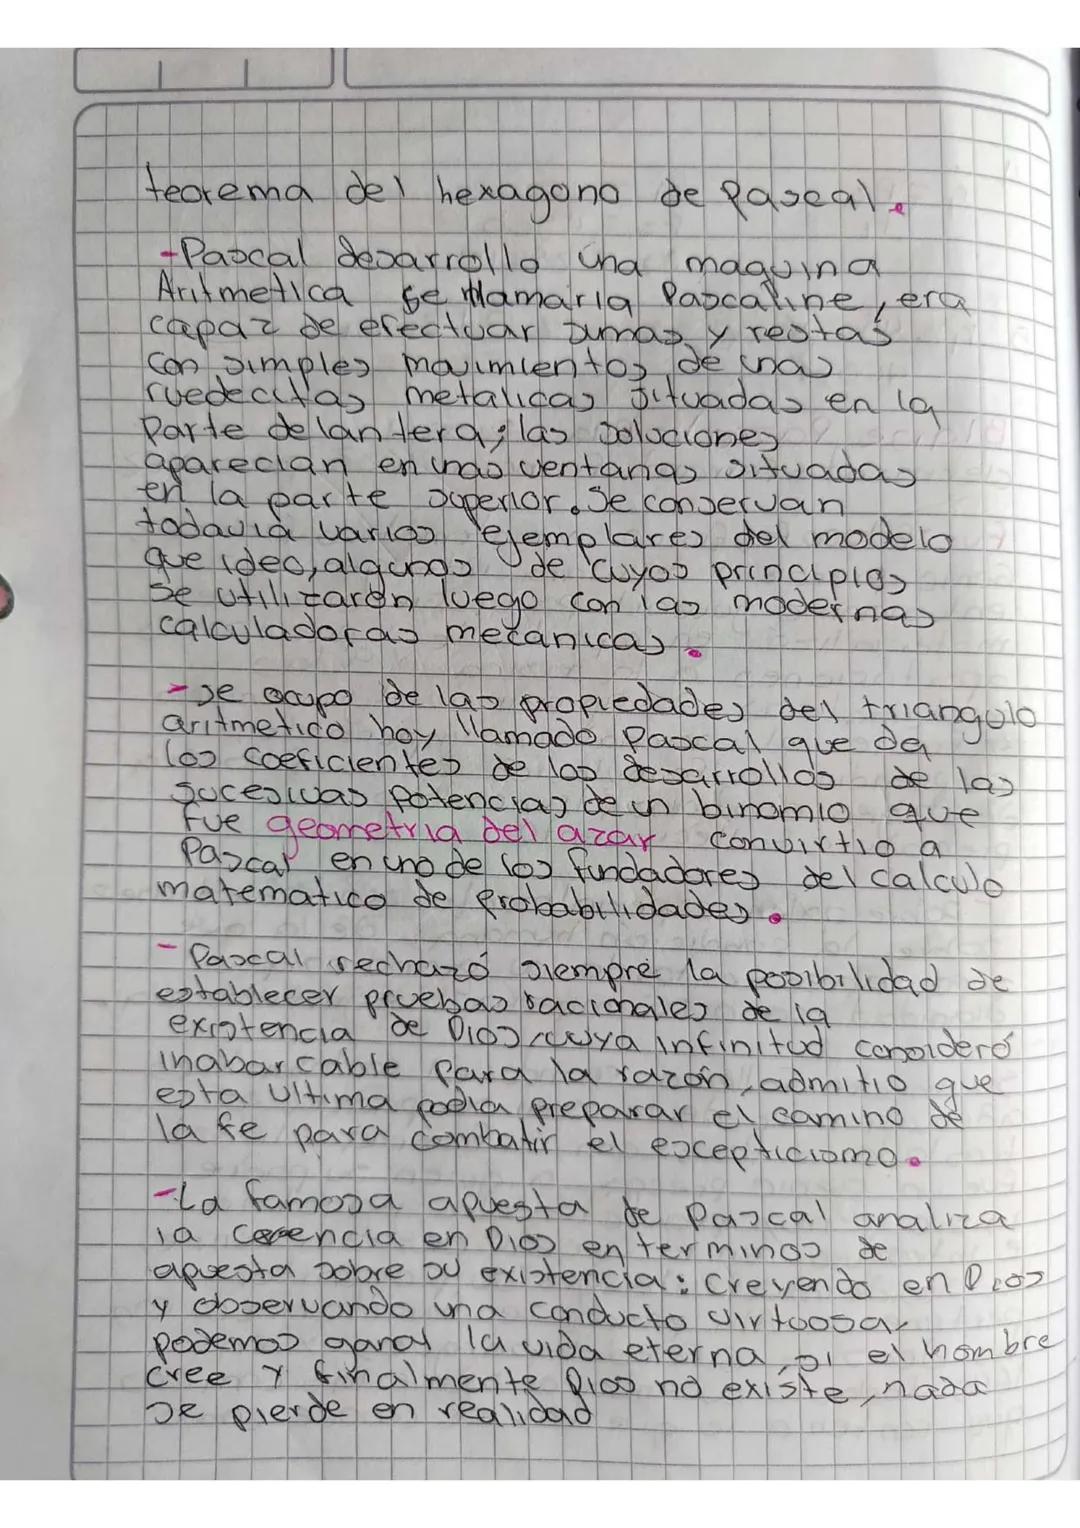 teorema del hexagono de Pascal.
-Pascal desarrollo una maquina
Aritmetica se llamaria Pascaline, era
capaz de efectuar sumas y restas
con simples movimientos de unas
ruedecitas metalicas situadas en la
Parte delantera; las soluciones
aparecian en unas ventanas situadas
en la parte superior. Se conservan
todavia varios ejemplares del modelo
que ideo, algunos de cuyos principios
se utilizaron luego con las modernas
calculadoras mecanicas.
-se ocupo de las propiedades del triangulo
aritmetico hoy llamado Pascal que da
los coeficientes de los desarrollos de las
sucesivas potencias de un binomio que
fue geometria del azar convirtio a
Pascal en uno de los fundadores del calculo
matematico de Probabilidades.
- Pascal rechazó siempre la posibilidad de
establecer pruebas racionales de la
existencia de Dios, cuya infinitud consideró
inabarcable para la razón, admitio que
esta ultima podia preparar el camino de
la fe para combatir el escepticismo.
-La famosa apuesta de Pascal analiza
la creencia en Dios en terminos de
apuesta sobre su existencia: Creyendo en Dios
y observando una conducto virtuosa,
podemos ganar la vida eterna, si el hombre
cree y finalmente Dios no existe, nada
se pierde en realidad